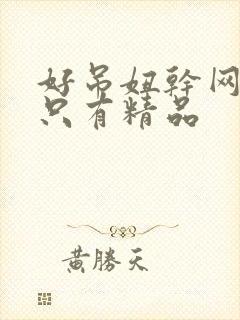 好吊妞幹网
只有精品
黃勝天